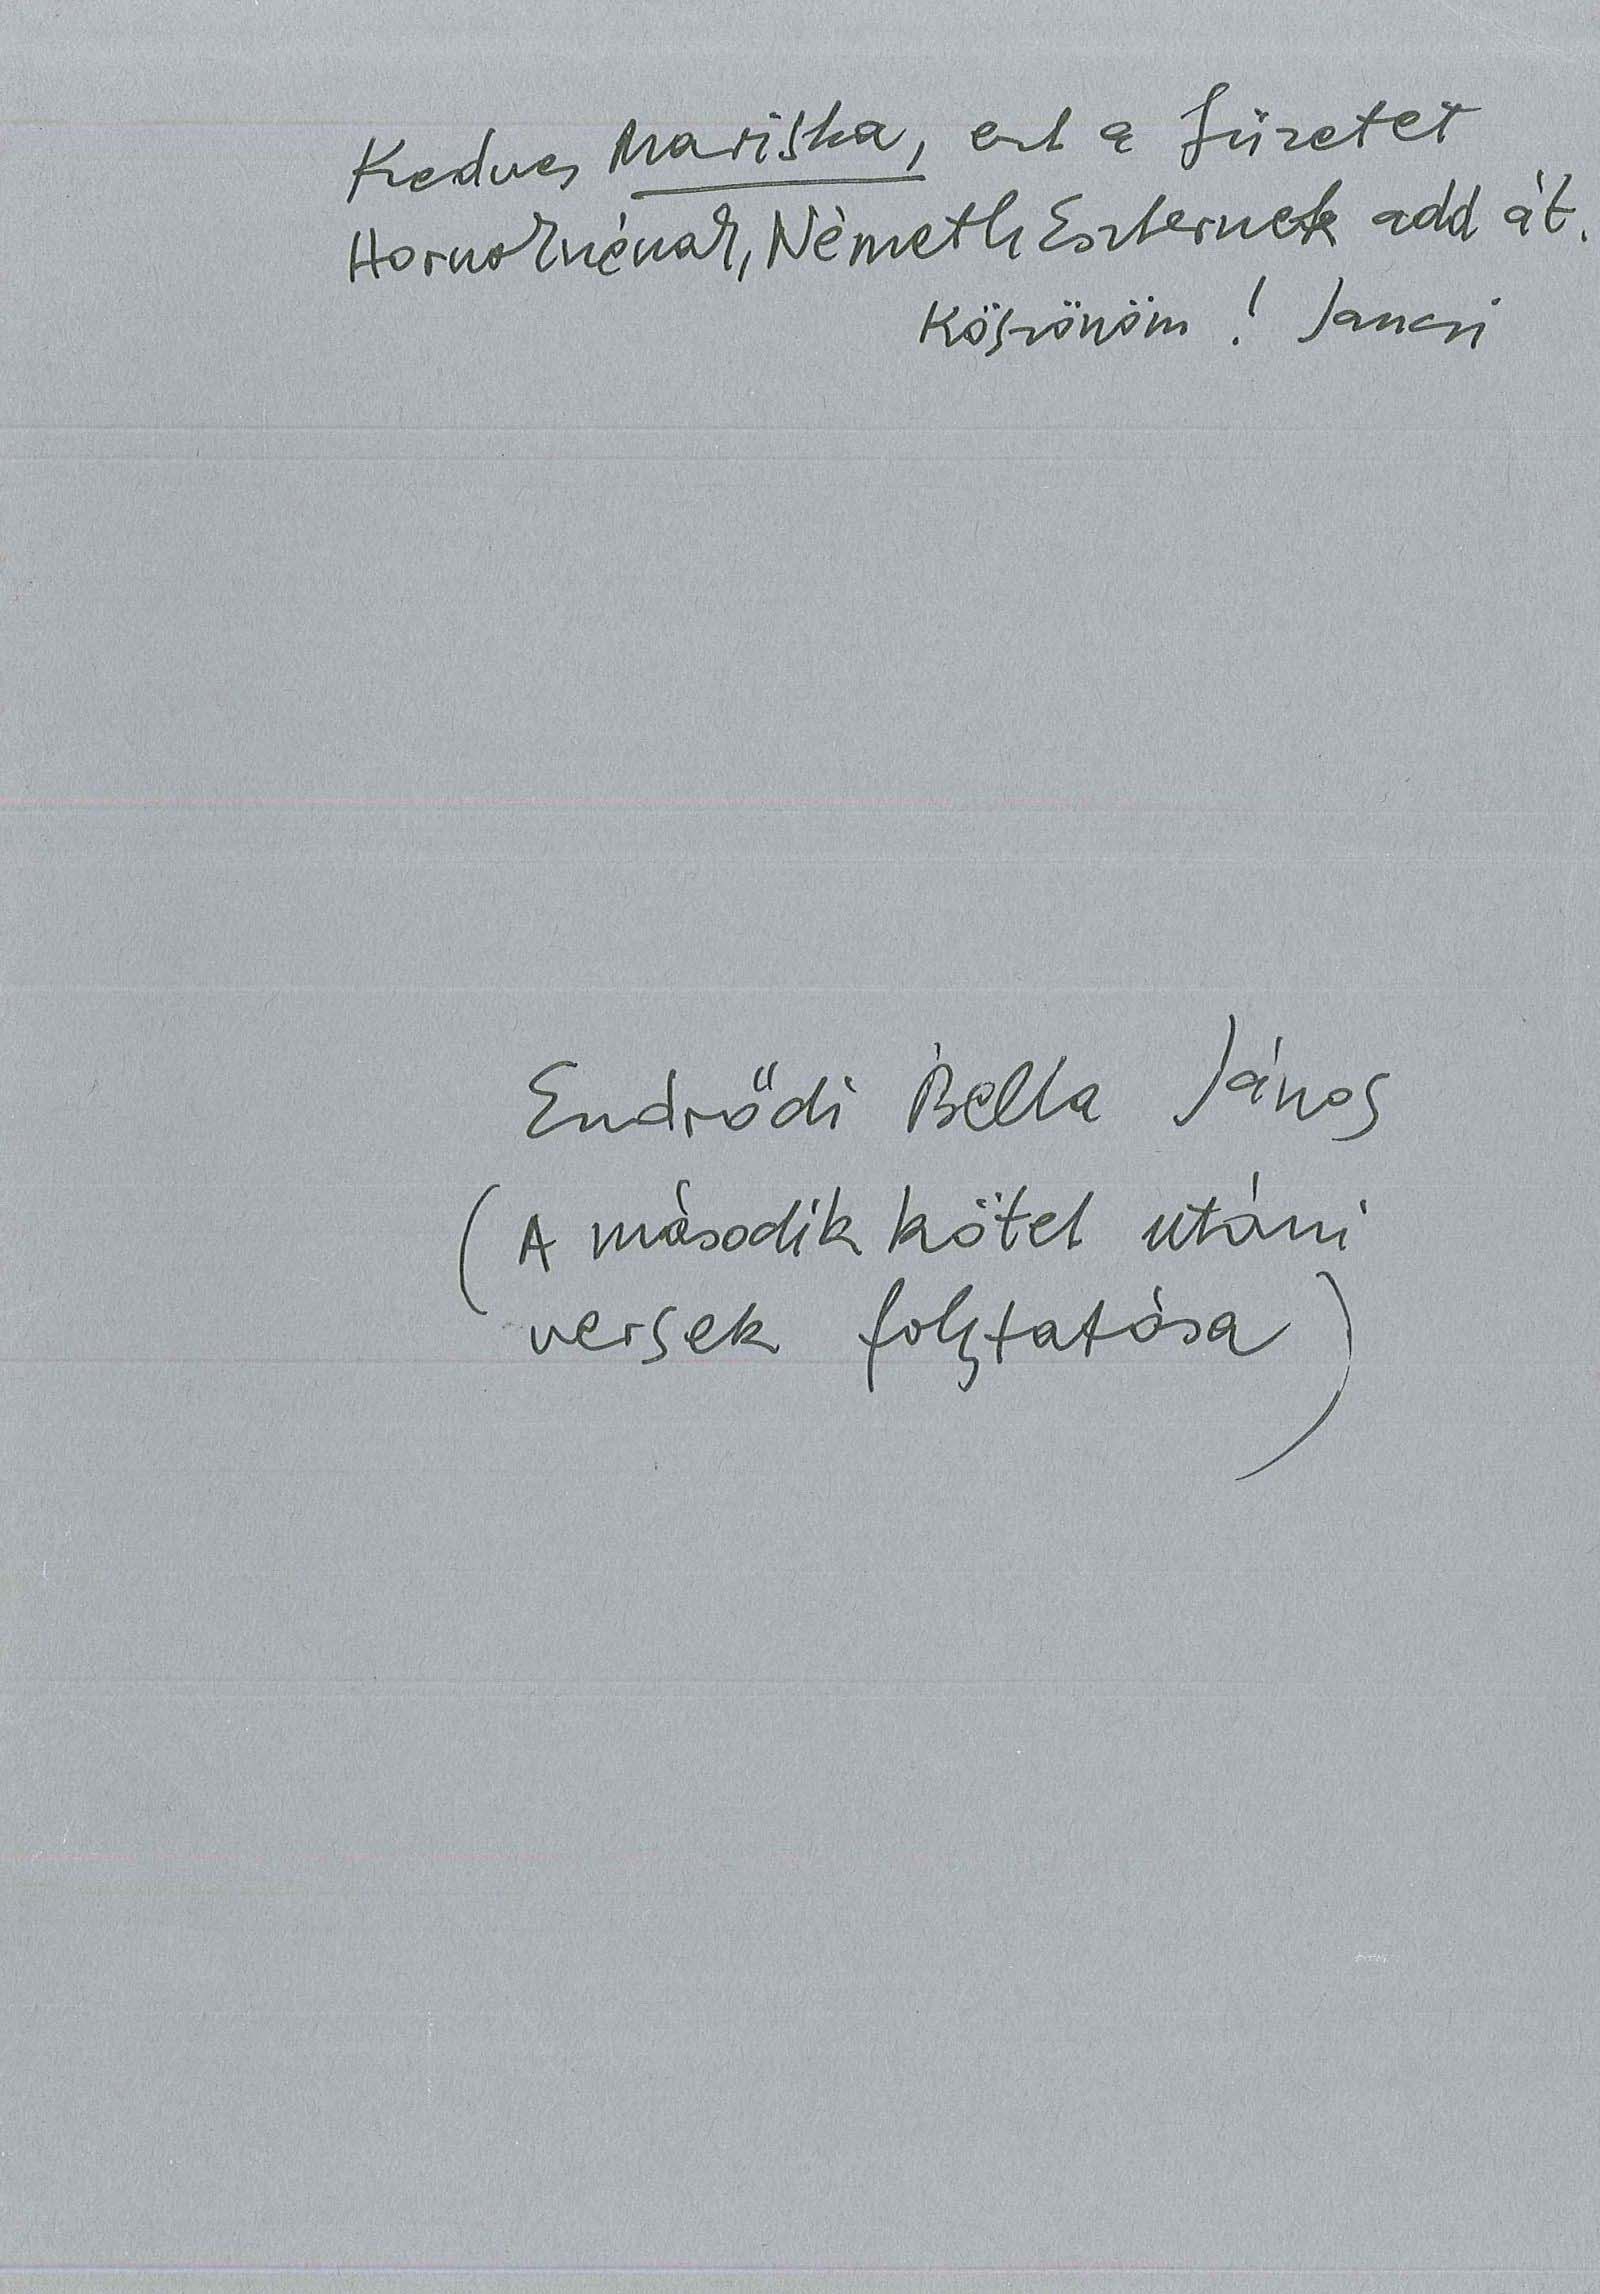 Kedves Mariska, ezt a füzetet
Hornoknénak, Németh Eszternek add át.
Köszönöm! Jancsi
Endrődi Bella János
(A második kötet utáni
versek folytatása)